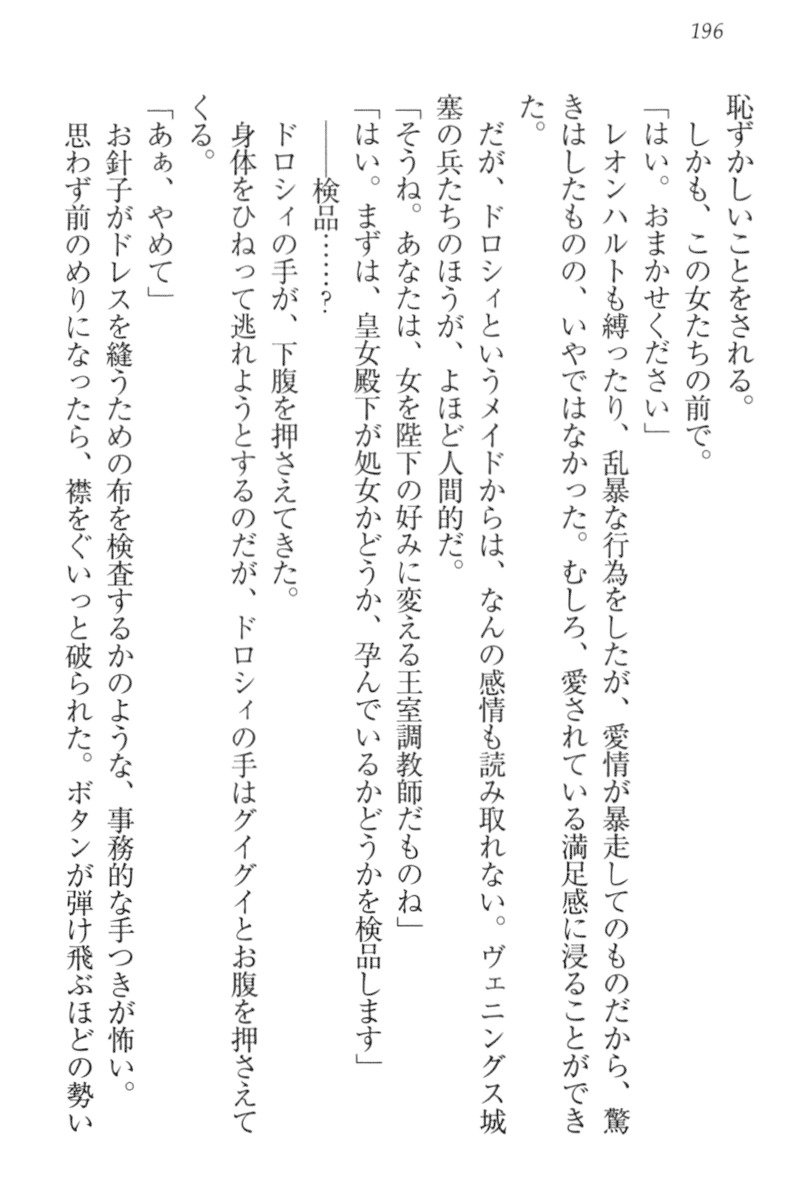 196
恥ずかしいことをされる。
しかも、この女たちの前で。
「はい。おまかせください」
レオンハルトも縛ったり、乱暴な行為をしたが、愛情が暴走してのものだから、驚
きはしたものの、いやではなかった。むしろ、愛されている満足感に浸ることができ
た。
だが、ドロシィというメイドからは、なんの感情も読み取れない。ヴェニングス城
塞の兵たちのほうが、よほど人間的だ。
「そうね。あなたは、女を陛下の好みに変える王室調教師だものね」
「はい。まずは、皇女殿下が処女かどうか、孕んでいるかどうかを検品します」
――検品……?
ドロシィの手が、下腹を押さえてきた。
身体をひねって逃れようとするのだが、ドロシィの手はグイグイとお腹を押さえて
くる。
「あぁ、やめて」
お針子がドレスを縫うための布を検査するかのような、事務的な手つきが怖い。
思わず前のめりになったら、襟をぐいっと破られた。ボタンが弾け飛ぶほどの勢い